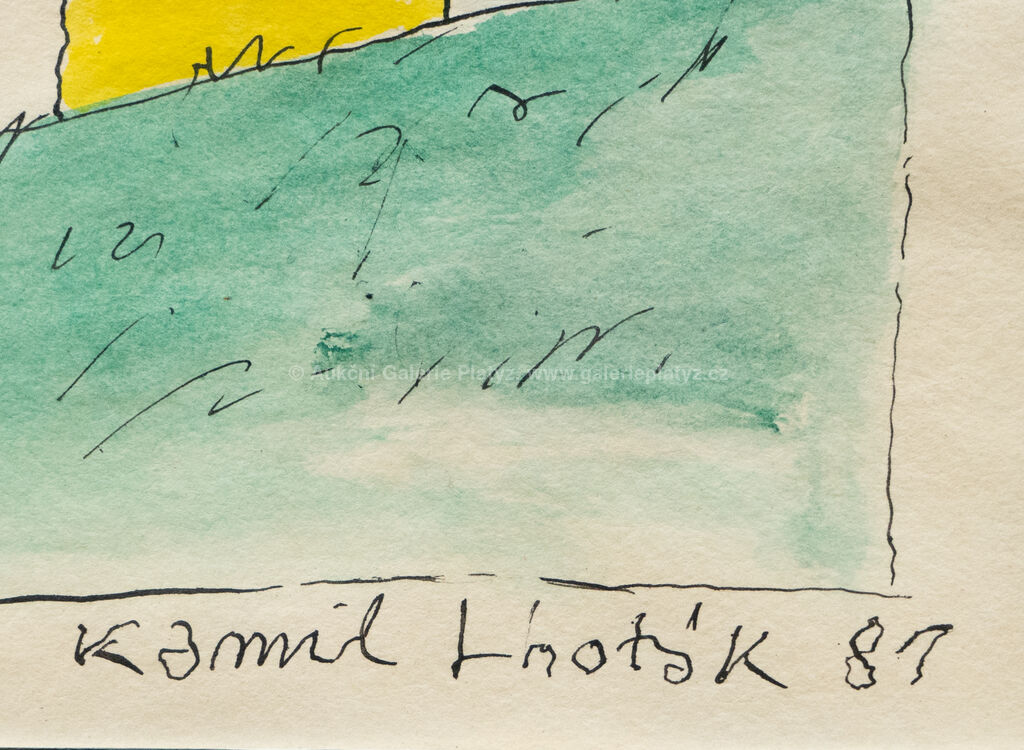 © Aukční Galerie Platýz, www.galerieplatyz.cz
Kamil Lhoták 81